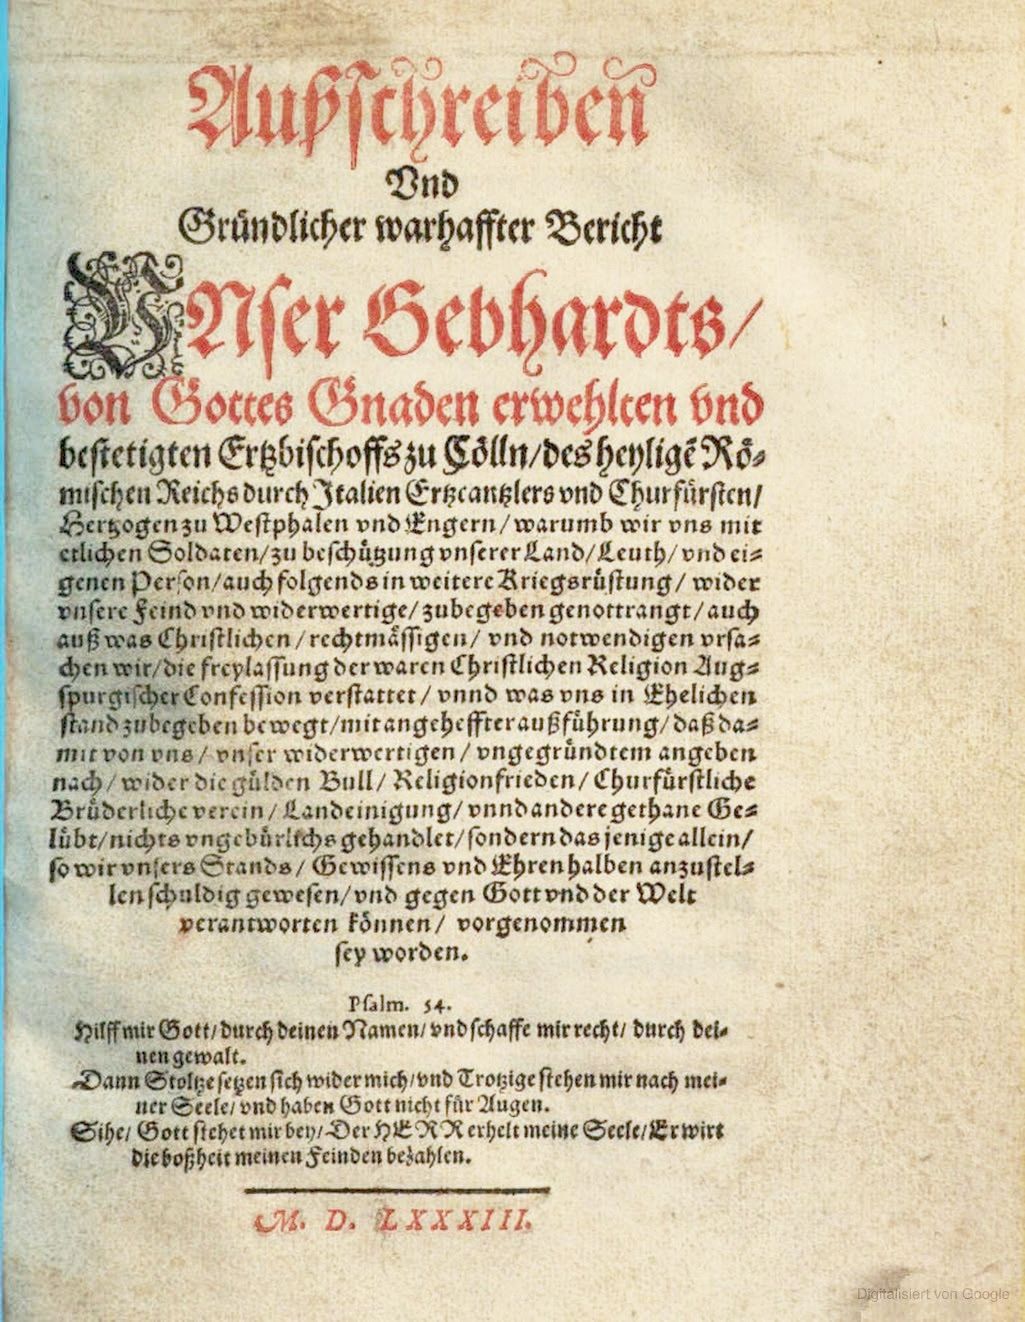 Außſchreiben
Vnd
Gründlicher warhaffter Bericht
VNſer Gebhardts/
von Gottes Gnaden erwehlten vnd
beſtetigten Ertzbiſchoffs zu Cölln/des heyligẽ Rö⸗
miſchen Reichs durch Italien Ertzcantzlers vnd Churfürſten/
Hertzogen zu Weſtphalen vnd Engern/warumb wir vns mit
etlichen Soldaten/zu beſchützung vnſerer Land/Leuth/vnd ei⸗
genen Perſon/auch folgends in weitere Kriegsrüſtung/ wider
vnſere Feind vnd widerwertige/zubegeben genottrangt/auch
auß was Chriſtlichen/rechtmäſſigen/ vnd notwendigen vrſa⸗
chen wir/die freylaſſung der waren Chriſtlichen Religion Aug⸗
ſpurgiſcher Confeſſion verſtattet/ vnnd was vns in Ehelichen
ſtand zubegeben bewegt/mit angeheffter außführung/daß da⸗
mit von vns/ vnſer widerwertigen/ vngegründtem angeben
nach/wider die gülden Bull/ Religionfrieden/Churfürſtliche
Brüderliche verein/Landeinigung/vnnd andere gethane Ge⸗
lübt/nichts vngebürlichs gehandlet/ſondern das jenige allein/
ſo wir vnſers Stands/ Gewiſſens vnd Ehren halben anzuſtel⸗
len ſchuldig geweſen/vnd gegen Gott vnd der Welt
verantworten können/ vorgenommen
ſey worden.
Pſalm. 54.
Hilff mir Gott/durch deinen Namen/vnd ſchaffe mir recht/ durch dei⸗
nen gewalt.
Dann Stoltze ſetzen ſich wider mich/vnd Trotzige ſtehen mir nach mei⸗
ner Seele/vnd haben Gott nicht für Augen.
Sihe/ Gott ſtehet mir bey/Der HERR erhelt meine Seele/Er wirt
die boßheit meinen Feinden bezahlen.
M. D. LXXXIII.
Digitalisiert von Google